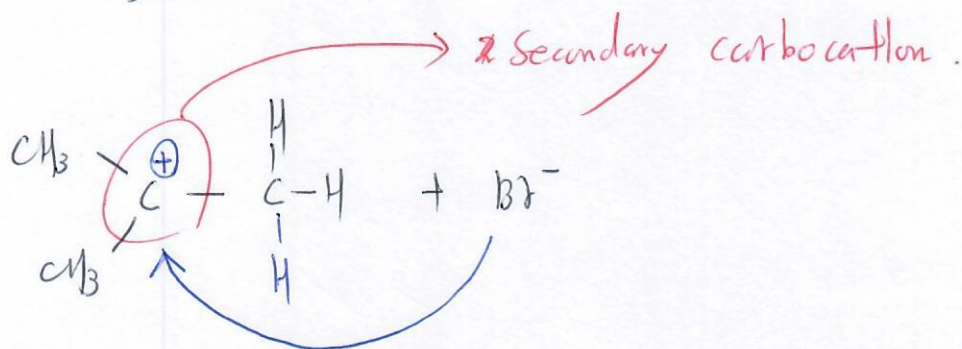 Secondary carbocation.
H
CH3
+
C - C - H + Br-
CH3
H